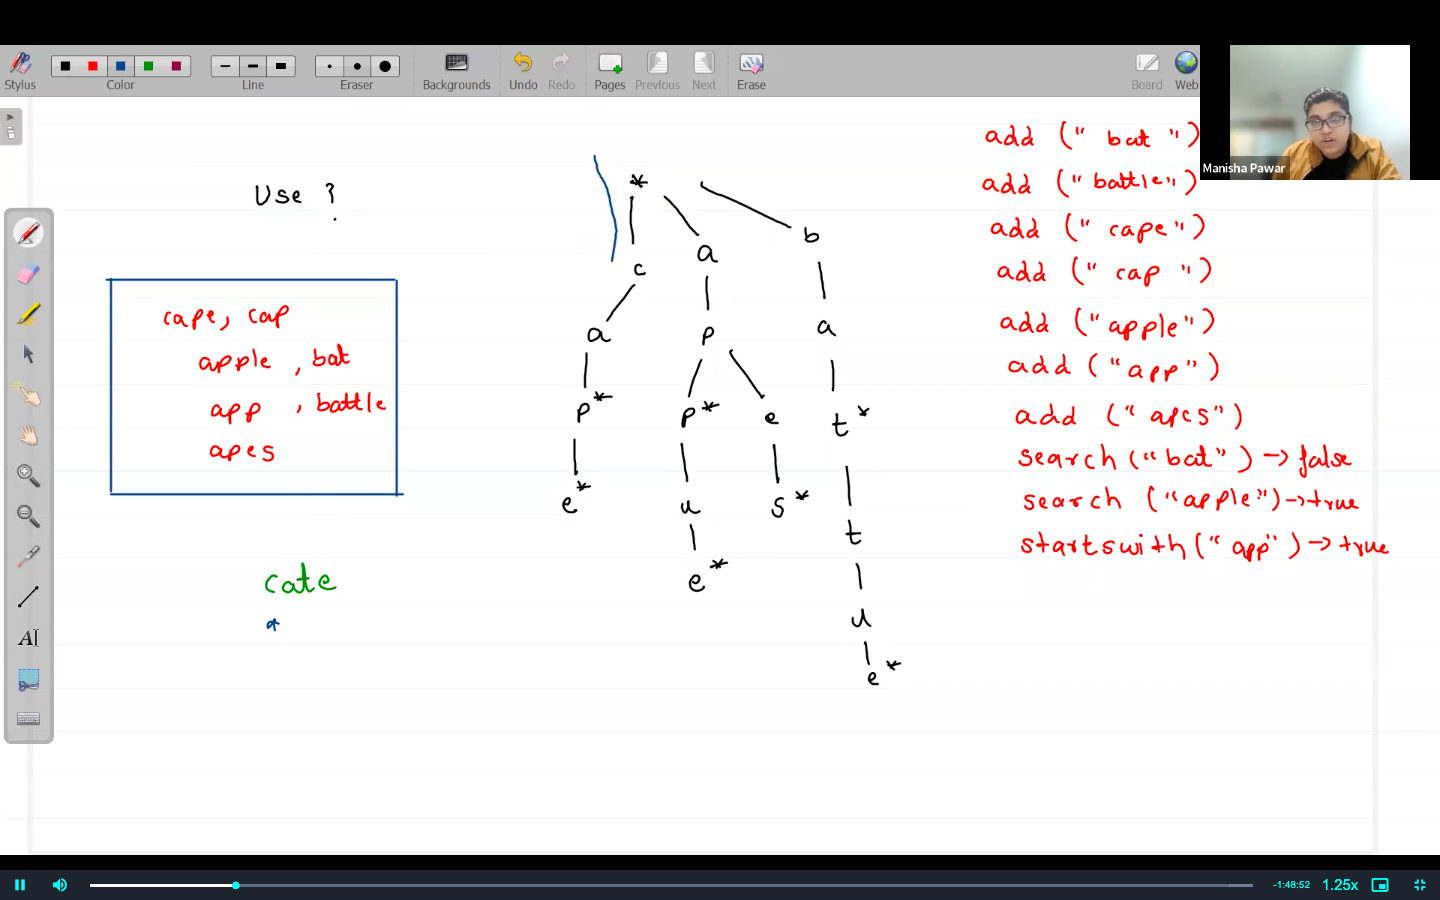 Stylus
Color
Line
Eraser
Backgrounds
Undo
Redo
Pages
Previous
Next
Erase
Board
Web
Manisha Pawar
Use ?
cape, cap
apple, bat
app, battle
apes
cate
*
*
c a b
a p a
p* p* e t*
e* u s* t
e* u
e*
add (" bat ")
add ("battle")
add (" cape")
add (" cap ")
add ("apple")
add ("app")
add ("apes")
search ("bat") -> false
search ("apple") -> true
startswith ("app") -> true
AI
-1:48:52
1.25x